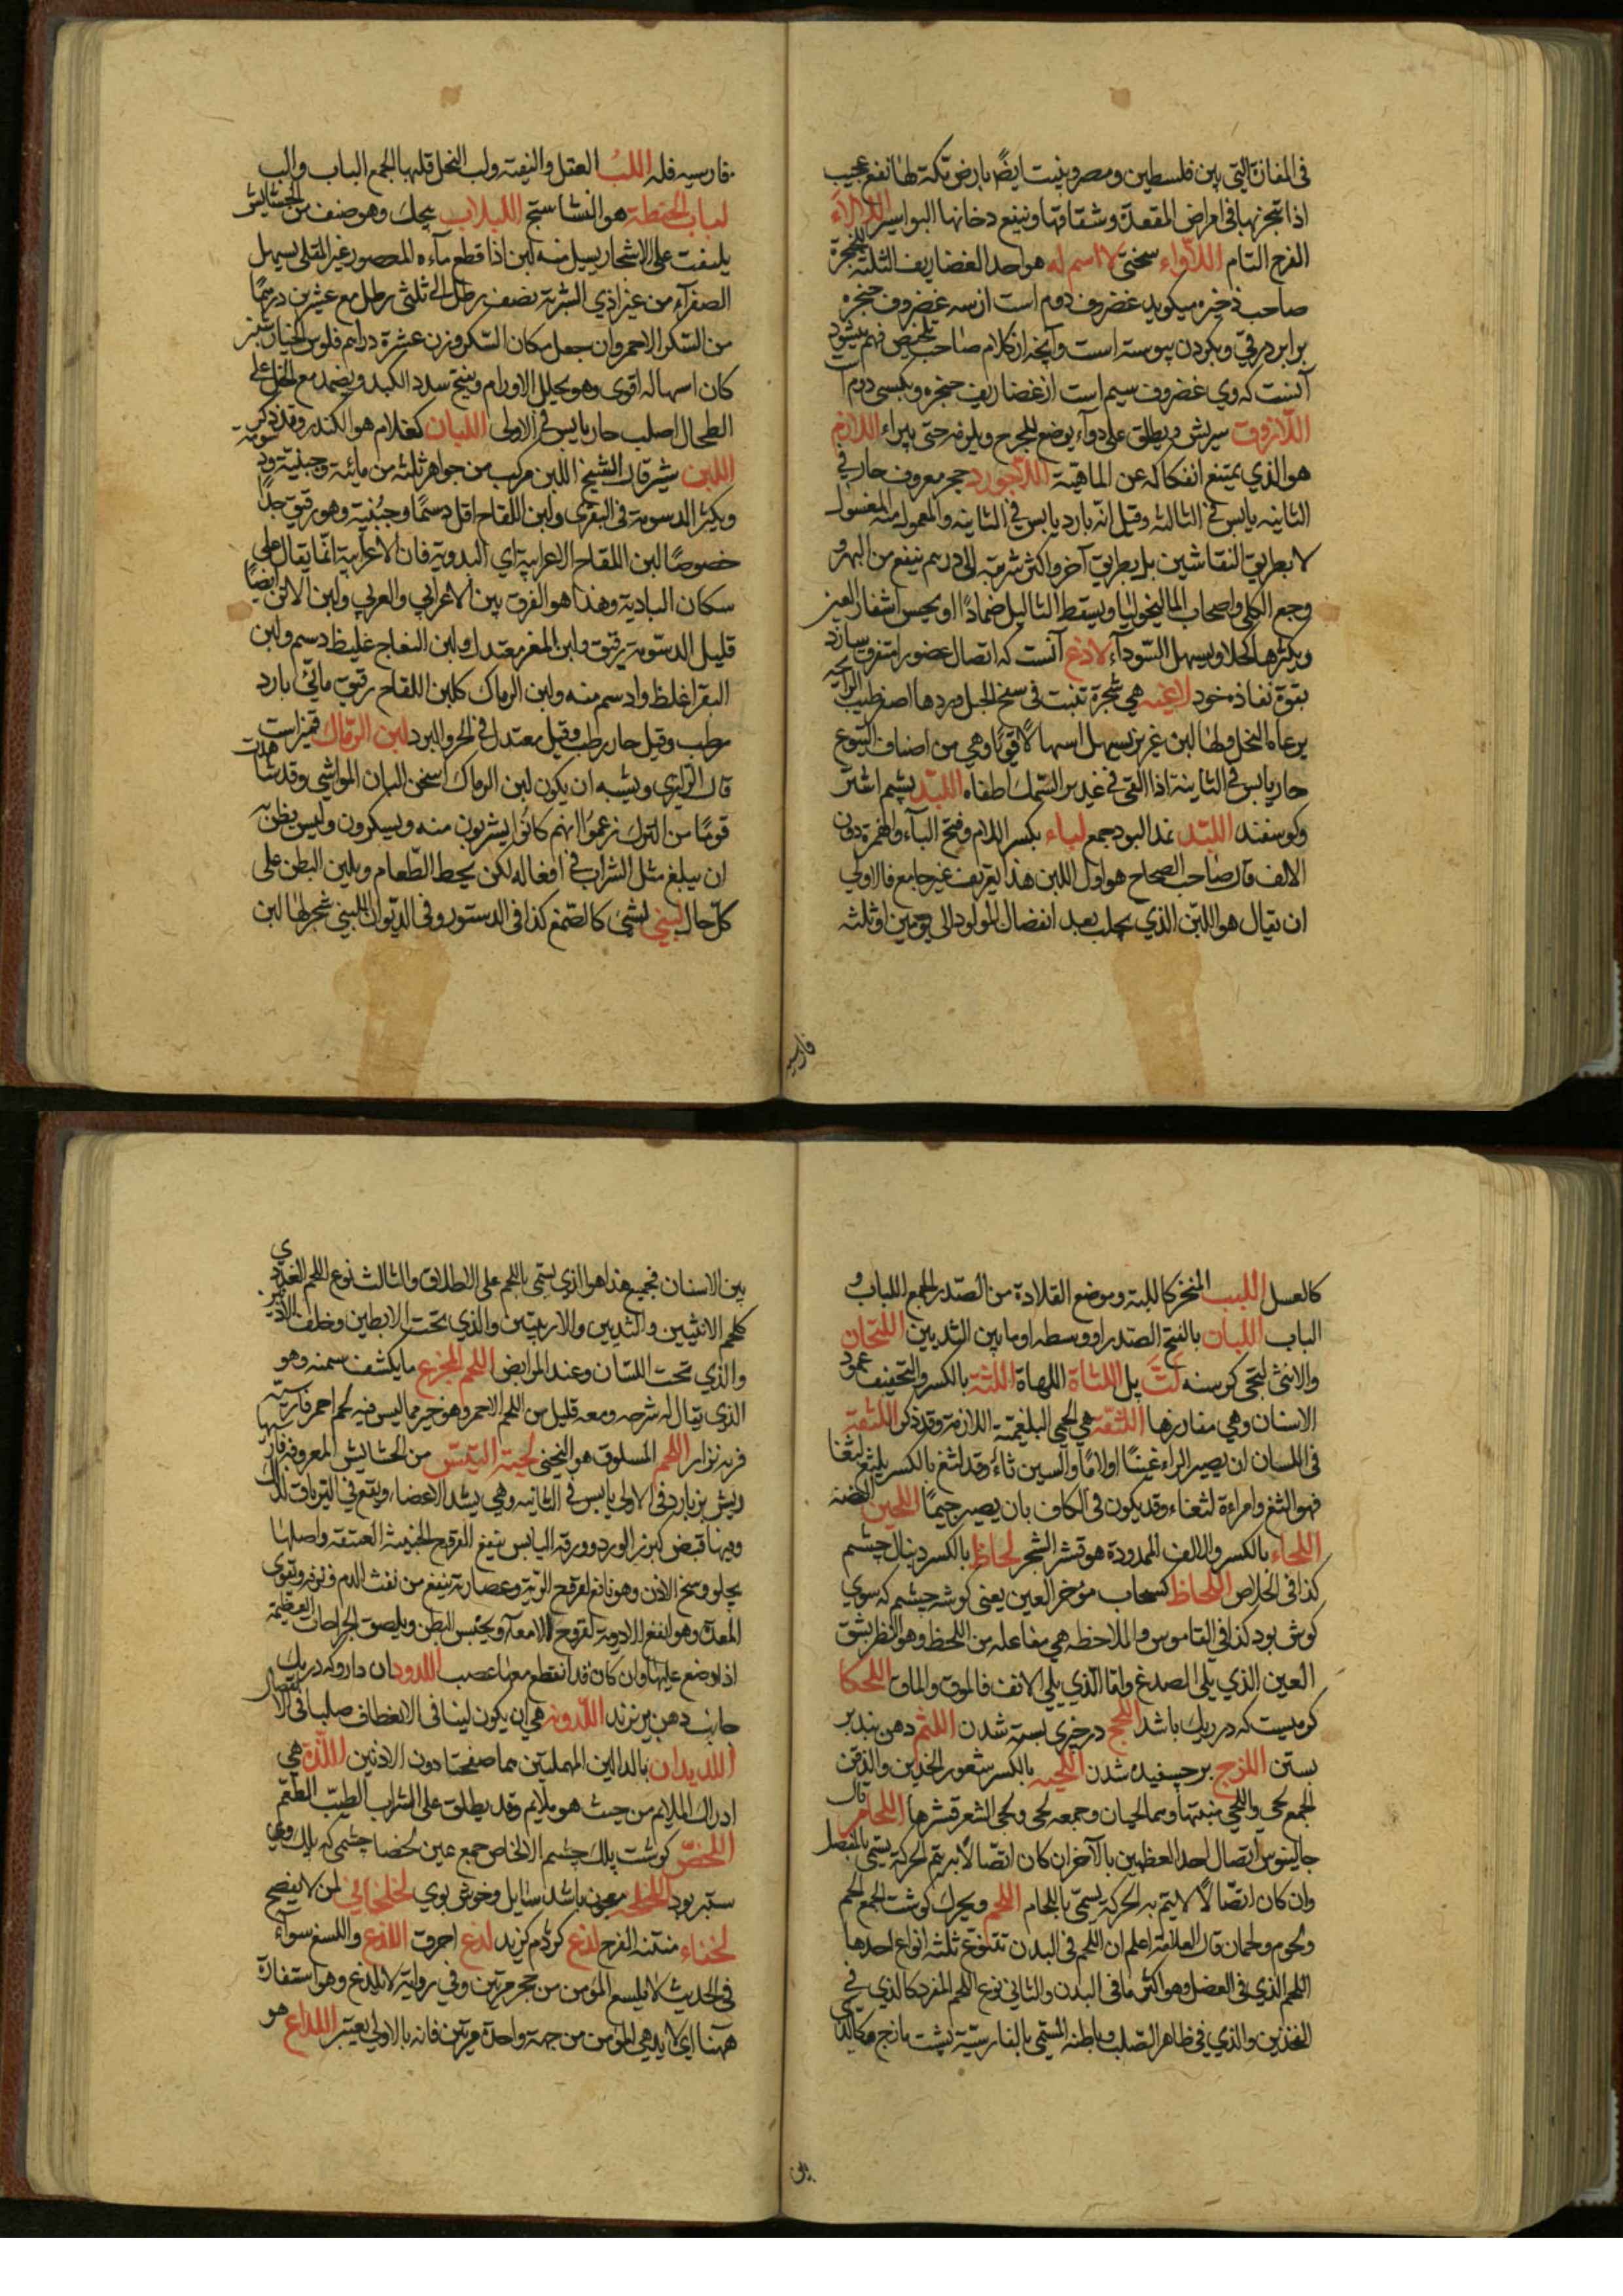 في المفازة التي بين فلسطين ومصر وينبت ايضًا بارض تكة لها نفع عجيب
اذا تبخر بها في امراض المقعدة وشقاقها وينفع دخانها البواسير اللالاء
الفرح التام اللاواء سختي لا اسم له هو احد الغضاريف الثلثة للحنجرة
صاحب ذخيره ميكويد غضروف دوم است از سه غضروف حنجره
برابر در قي وبكردن پيوسته است وآنچه از كلام صاحب تلخيص فهم ميشود
آنست كه وي غضروف سيم است از غضاريف حنجره وبكسي دوم است
اللازوق سريش ويطلق على دواء يوضع للجرح ويلزمه حتى يبراء اللازم
هو الذي يمتنع انفكاكه عن الماهية اللاجورد حجر معروف حار في
الثانيه يابس في الثالثه وقيل انه بارد يابس في الثانيه والمعمول منه المغسول
لا بطريق النقاشين بل بطريق آخر واكثر شربته الى درهم ينفع من البهر و
وجع الكلى واصحاب الماليخوليا ويسقط الثاليل ضمادًا او يحسن اشفار العين
ويكثرها اكتحلا ويسهل السودآء لاذع آنست كه اتصال عضو را متفرق سازد
بقوة نفاذه خود لاغيه هي شجرة تنبت في سفح الجبل وردها اصفر طيب الرايحه
يرعاه النحل ولها لبن غزير يسهل اسهالًا قويًا وهي من اصناف اليتوع
حار يابس في الثانية اذا القي في غدير السمك اطفاه اللبد پشم اشتر
وكوسفند اللبد نمد البود جمع لباء بكسر اللام وفتح الباء والهمزة دون
الالف قال صاحب الصحاح هو اول اللبن هذا تعريف غير جامع فالاولي
ان يقال هو اللبن الذي يحلب بعد انفصال المولود الى يومين او ثلثه
فارسيه
فارسيه فله اللب العقل والنقيه ولب النخل قلبها الجمع الباب والب
لباب الحنطة هو النشاستج اللبلاب پيچك وهو صنف من الحشايش
يلتفت على الاشجار يسيل منه لبن اذا قطع مآءه المعصور غير المقلى يسهل
الصفرآء من غير اذي الشربة نصف رطل الى ثلثي رطل مع عشرين درهمًا
من السكر الاحمر وان جعل مكان السكر وزن عشرة دراهم فلوس الخيار شنبر
كان اسهاله اقوى وهو يحلل الاورام وينتح سدد الكبد ويضمد مع الخل على
الطحال الصلب حار يابس في الاولى اللبان كغلام هو الكندر وقد ذكر
اللبن شير قال الشيخ اللبن مركب من جواهر ثلثه من مائية وجبنية ودسومة
ويكثر الدسومة في البقري ولبن اللقاح اقل دسمًا وجبنية وهو رقيق جدًا
خصوصًا لبن اللقاح الاعرابية اي البدوية فان الاعرابية انما يقال على
سكان البادية وهذا هو الفرق بين الاعرابي والعربي ولبن الاتن ايضًا
قليل الدسومة رقيق ولبن المعز معتدل ولبن النعاج غليظ دسم ولبن
البقر اغلظ وادسم منه ولبن الرماك كلبن اللقاح رقيق مائي بارد
مرطب وقيل حار رطب وقيل معتدل في الحر والبرد لبن الرماك قميز است
قال الرازي ويشبه ان يكون لبن الرماك اسخن البان المواشي وقد شاهدت
قومًا من الترك زعموا انهم كانوا يشربون منه ويسكرون وليس يظن به
ان يبلغ مثل الشراب في افعاله لكن يحط الطعام ويلين البطن على
كل حال لبنى لشئ كالصمغ كذا في الدستور وفي الديوان اللبنى شجر لها لبن
كالعسل اللبب المنخر كاللبة وموضع القلادة من الصدر الجمع اللباب و
الباب اللبان بالفتح الصدر او وسطه او ما بين الثديين اللتحان
والانثى لتحى كرسنه لت پل اللثاة اللهاة اللثة بالكسر والتخفيف عمود
الاسنان وهي مغارزها اللثقة هي الحمى البلغمية اللازمة وقد ذكر اللثغة
في اللسان ان يصير الراء غينًا او لامًا والسين ثاءً وقد لثغ بالكسر يلثغ لثغا
فهو الثغ وامراءة لثغاء وقد يكون في الكاف بان يصير جيمًا اللجين الفضه
اللحاء بالكسر والالف الممدودة هو قشر الشجر لحاظ بالكسر دنبال چشم
كذا في الخلاص اللحاظ كسحاب مؤخر العين يعنى كوشه چشم كه سوي
كوش بود كذا في القاموس والملاحظه هي مفاعله من اللحظ وهو النظر بشق
العين الذي يلي الصدغ واما الذي يلي الانف فالموق والماق اللحكا
كرميست كه در ريك باشد اللحج در خيزى بسته شدن اللثم دهن بندبر
بستن اللزج بر چسفيده شدن اللحيه بالكسر شعور الخدين والذقن
الجمع لحي واللحي منبتها وهما لحيان وجمعه لحي ولحى الشجر قشرها اللحام قال
جالينوس اتصال احد العظمين بالآخر ان كان اتصالًا به يتم الحركة يسمى بالمفصل
وان كان اتصالًا لا يتم به الحركة يسمى باللحام اللحم ويحرك كوشت الجمع لحم
ولحوم ولحمان قال العلامة اعلم ان اللحم في البدن تتنوع ثلثه انواع احدها
اللحم الذي في العضل وهو اكثر ما في البدن والثاني نوع اللحم المفرد كالذي في
الفخذين والذي في ظاهر الصلب وباطنه المسمى بالفارسية پشت مازج وكالذي
بين
بين الاسنان فجميع هذا هو الذي يسمى باللحم على الاطلاق والثالث نوع اللحم الغددي
كلحم الانثيين والثديين والاربيتين والذي تحت الابطين وخلف الاذنين
والذي تحت اللسان وعند المرابض اللحم المجزع ما يكشف سمنه وهو
الذي يقال له شرحه ومعه قليل من اللحم الاحمر وهو خير مما ليس فيه لحم احمر فارسيته
فربه نزار اللحم المسلوق هو اليخنى لحية التيس من الحشايش المعروفه فارسيها
ريش بز بارد في الاولى يابس في الثانيه وهي يشد الاعضاء ويقع في الترياق لذلك
وفيها قبض كبزر الورد وورقه اليابس ينفع القروح الخبيثه العتيقه واصلها
يجلو وسخ الاذن وهو نافع لقرقح الرية وعصارته ينفع من نفث الدم ونزفه وتقوى
المعدة وهو انفع الادوية لقروح الامعاء ويحبس البطن ويلصق الجراحات العظيمه
اذا وضع عليها وان كان قد انقطع معها عصب اللدود ان داروكه در يك
جانب دهن بريزند اللدونه هي ان يكون لينا في الانعطاف صلبا في الاتصال
اللديدان بالدالين المهملتين هما صفحتا دون الاذنين اللذة هي
ادراك الملايم من حيث هو ملايم وقد يطلق على الشراب الطيب الطعم
اللخص كوشت پلك چشم الالخاص جمع عين لخصا چشمى كه پلك وي
ستبر بود اللخلخه معجون باشد سايل وخوش بوي لخلخاني لمن لا يفصح
لخناء منتنه الفرج لدغ كژدم كزيد لذع احرق اللدغ واللسع سوآء
في الحديث لا يلسع المؤمن من جحر مرتين وفي رواية لا يلدغ وهو استعارة
ههنا اي لا يدهي المؤمن من جهة واحدة مرتين فانه بالاولي يعتبر اللذاع هو